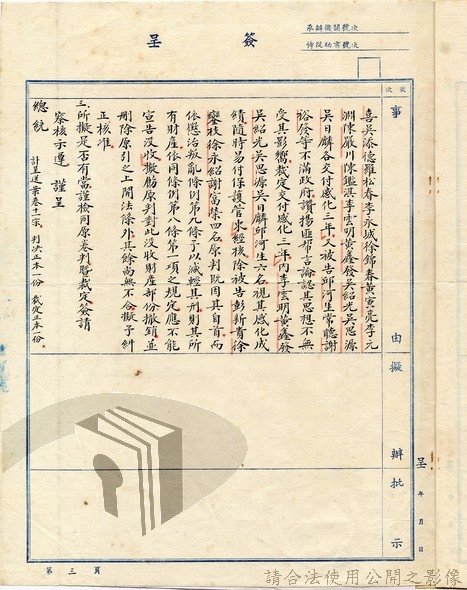 簽呈
次號關機辦承
次號書秘屬侍
次號
事由擬辦批示
喜吳添德羅松春李永城徐錦春黃宣亮李元
洲陳嚴川陳鑑淇李雲明黃鑫發吳紹光吳思源
吳日麟各交付感化三年又被告邱河生常聽謝
裕發等不滿政府讚揚匪幫言論認其思想不無
受其影響裁定交付感化三年內李雲明黃鑫發
吳紹光吳思源吳日麟邱河生六名視其感化成
績隨時易付保護管束經核除被告彭新貴徐
樂枝徐永紹謝富榮四名原判既因其自首而
依懲治叛亂條例第九條予以減輕其刑則其所
有財產依同條例第八條第一項之規定應不能
宣告沒收擬飭原判對此沒收財產部份撤銷並
刪除原引之上開法條外其餘尚無不合擬予糾
正核准
三、所擬是否有當謹檢同原卷判暨裁定簽請
察核示遵 謹呈
總統 計呈送案卷十一宗、判決正本一份、裁定正本一份、
呈 年 月 日
第三頁
請合法使用公開之影像